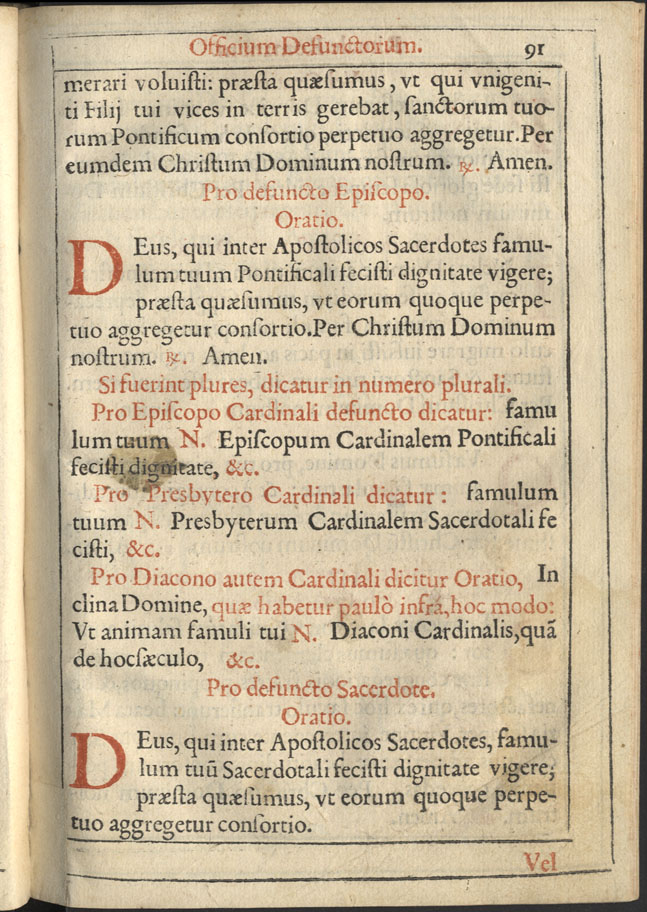 Officium Defunctorum. 91
merari voluiſti: præſta quæſumus, vt qui vnigeni-
ti Filij tui vices in terris gerebat, ſanctorum tuo-
rum Pontificum conſortio perpetuo aggregetur.Per
eumdem Chriſtum Dominum noſtrum. ℞. Amen.
Pro defuncto Epiſcopo.
Oratio.
DEus, qui inter Apoſtolicos Sacerdotes famu-
lum tuum Pontificali feciſti dignitate vigere;
præſta quæſumus, vt eorum quoque perpe-
tuo aggregetur conſortio.Per Chriſtum Dominum
noſtrum. ℞. Amen.
Si fuerint plures, dicatur in numero plurali.
Pro Epiſcopo Cardinali defuncto dicatur: famu
lum tuum N. Epiſcopum Cardinalem Pontificali
feciſti dignitate, &c.
Pro Presbytero Cardinali dicatur: famulum
tuum N. Presbyterum Cardinalem Sacerdotali fe
ciſti, &c.
Pro Diacono autem Cardinali dicitur Oratio, In
clina Domine, quæ habetur paulò infrà, hoc modo:
Vt animam famuli tui N. Diaconi Cardinalis, quā
de hoc ſæculo, &c.
Pro defuncto Sacerdote.
Oratio.
DEus, qui inter Apoſtolicos Sacerdotes, famu-
lum tuū Sacerdotali feciſti dignitate vigere;
præſta quæſumus, vt eorum quoque perpe-
tuo aggregetur conſortio.
Vel